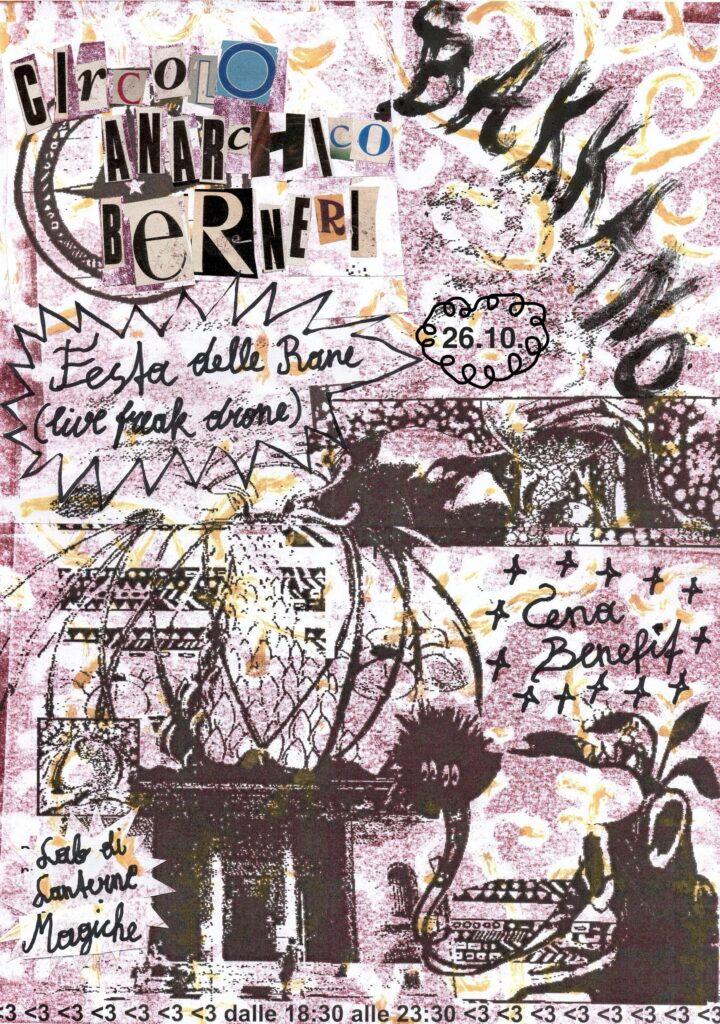 CIrcOLO
ANARcHICO
BeRNERI
BAKKANO
26.10.
Festa delle Rane
(live freak drone)
Cena
Benefit
Lab di
Lanterne
Magiche
<3 <3 <3 <3 <3 <3 dalle 18:30 alle 23:30 <3 <3 <3 <3 <3 <3